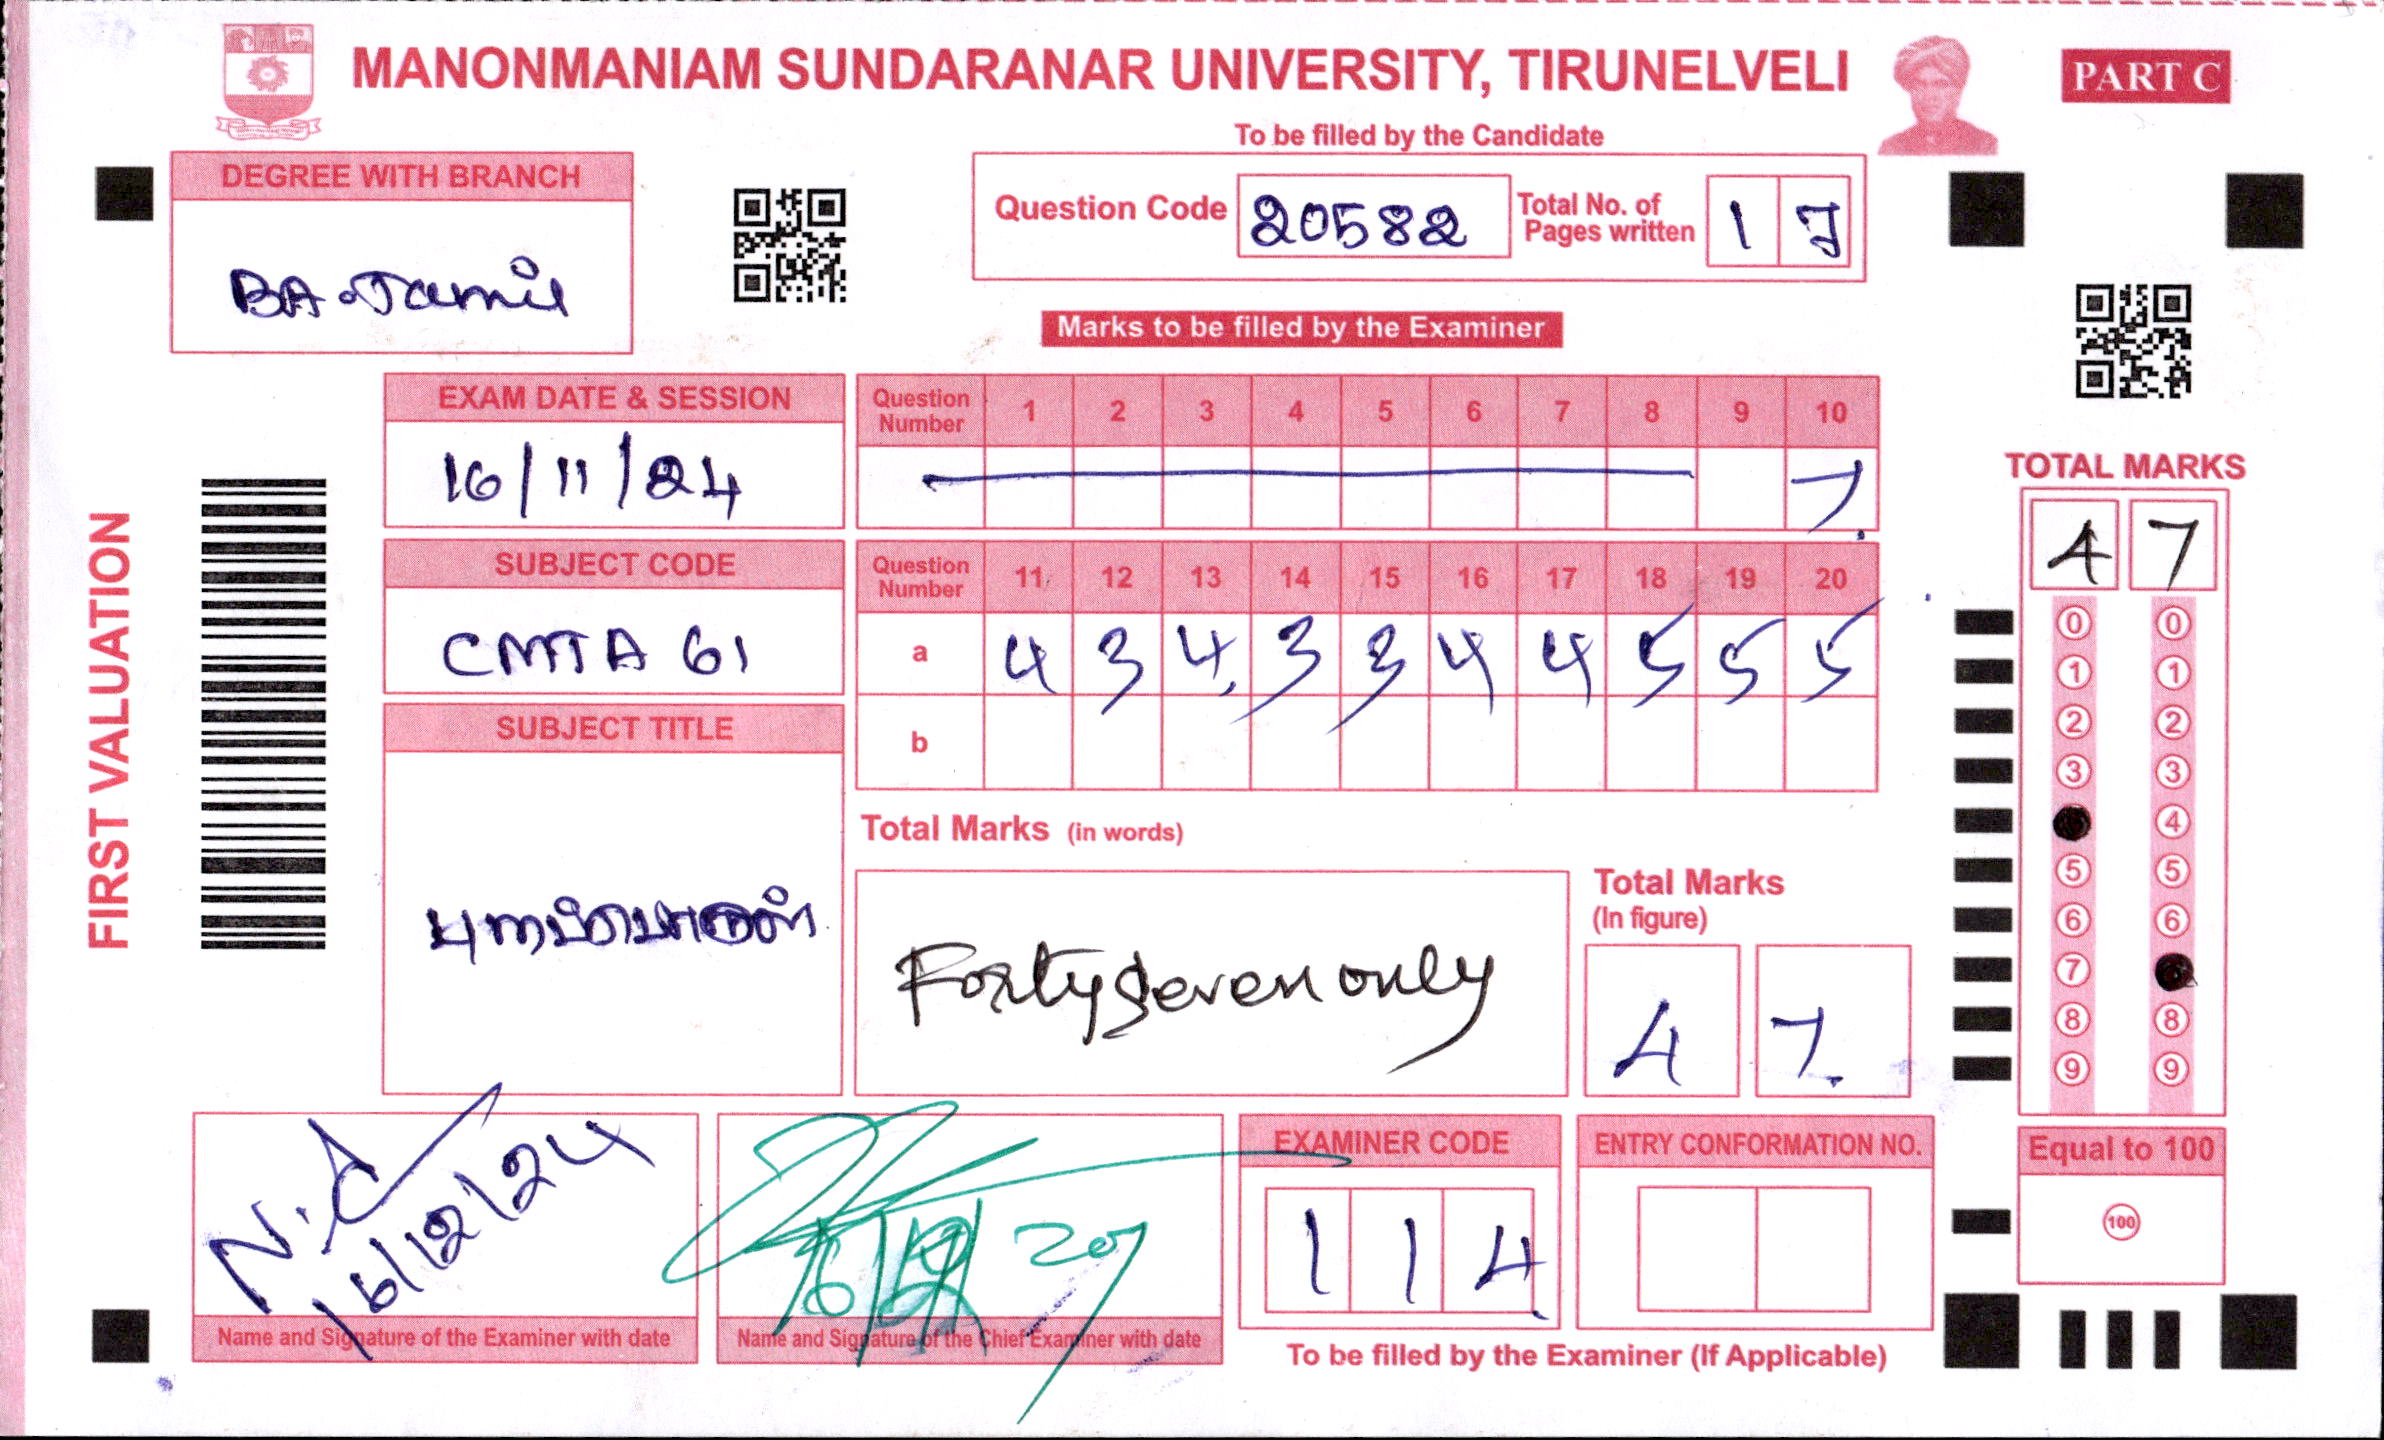 MANONMANIAM SUNDARANAR UNIVERSITY, TIRUNELVELI
PART C
To be filled by the Candidate
DEGREE WITH BRANCH
BA. Tamil
Question Code 20582
Total No. of Pages written 1 7
Marks to be filled by the Examiner
EXAM DATE & SESSION
16/11/24
Question Number 1 2 3 4 5 6 7 8 9 10
7.
SUBJECT CODE
CMTA 61
Question Number 11 12 13 14 15 16 17 18 19 20
a 4 3 4. 3 3 4 4 5 5 5
b
SUBJECT TITLE
புறப்பொருள்
Total Marks (in words)
Forty seven only
Total Marks
(In figure)
4 7.
FIRST VALUATION
TOTAL MARKS
4 7
0 0
1 1
2 2
3 3
4
5 5
6 6
7
8 8
9 9
Equal to 100
100
N.
16/12/24
Name and Signature of the Examiner with date
Name and Signature of the Chief Examiner with date
EXAMINER CODE
1 1 4
ENTRY CONFORMATION NO.
To be filled by the Examiner (If Applicable)